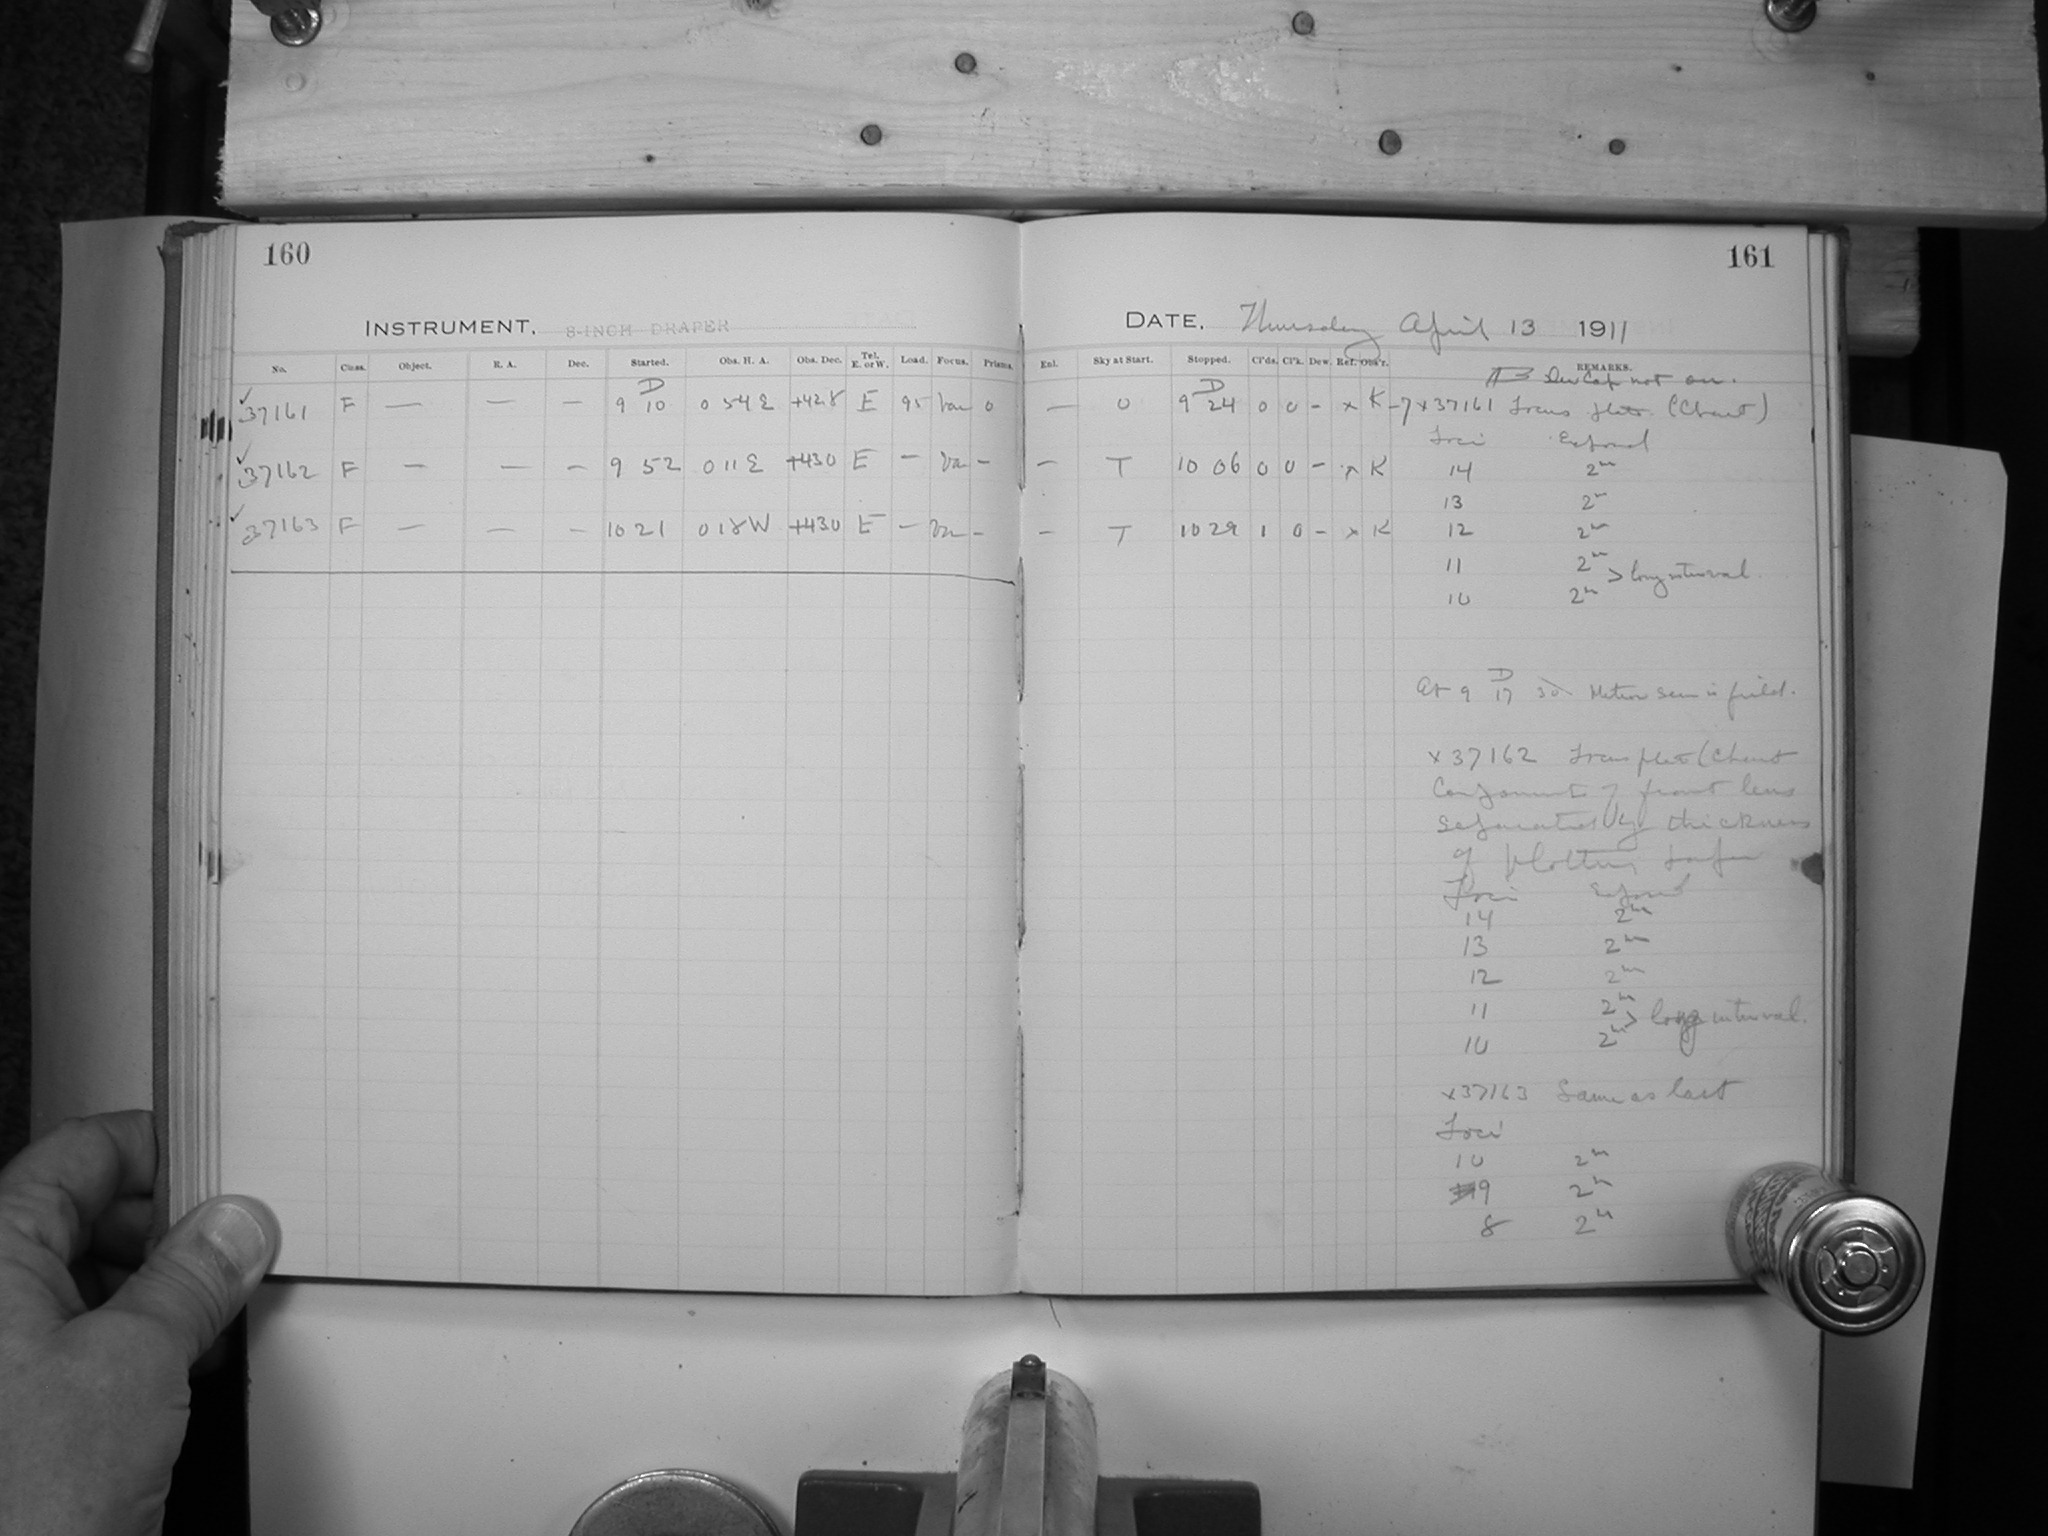 160
161
INSTRUMENT, 8-INCH DRAPER
DATE, Thursday April 13 1911
No. Class. Object. R. A. Dec. Started. Obs. H. A. Obs. Dec. Tel. E. or W. Load. Focus. Prisms.
Enl. Sky at Start. Stopped. Cl'ds. Cl'k. Dew. Ref. Obs'r. REMARKS.
Dew Cap not on.
✓37161 F — — — 9 D 10 0 54 E +42.8 E 95 Var 0
— 0 9 D 24 0 0 – x K –7 x37161 Focus plate (Chart)
Foci Exposed
✓37162 F — — — 9 52 0 11 E +43.0 E – Var –
– T 10 06 0 0 – x K 14 2m
13 2m
✓37163 F — — — 10 21 0 18 W +43.0 E – Var –
– T 10 29 1 0 – x K 12 2m
11 2m
> long interval
10 2m
At 9 D 17 30 Meteor seen in field.
x 37162 Focus plate (Chart
Components of front lens
separated by thickness
of blotting paper
Foci Exposed
14 2m
13 2m
12 2m
11 2m
> long interval.
10 2m
x37163 Same as last
Foci
10 2m
9 2m
8 2m